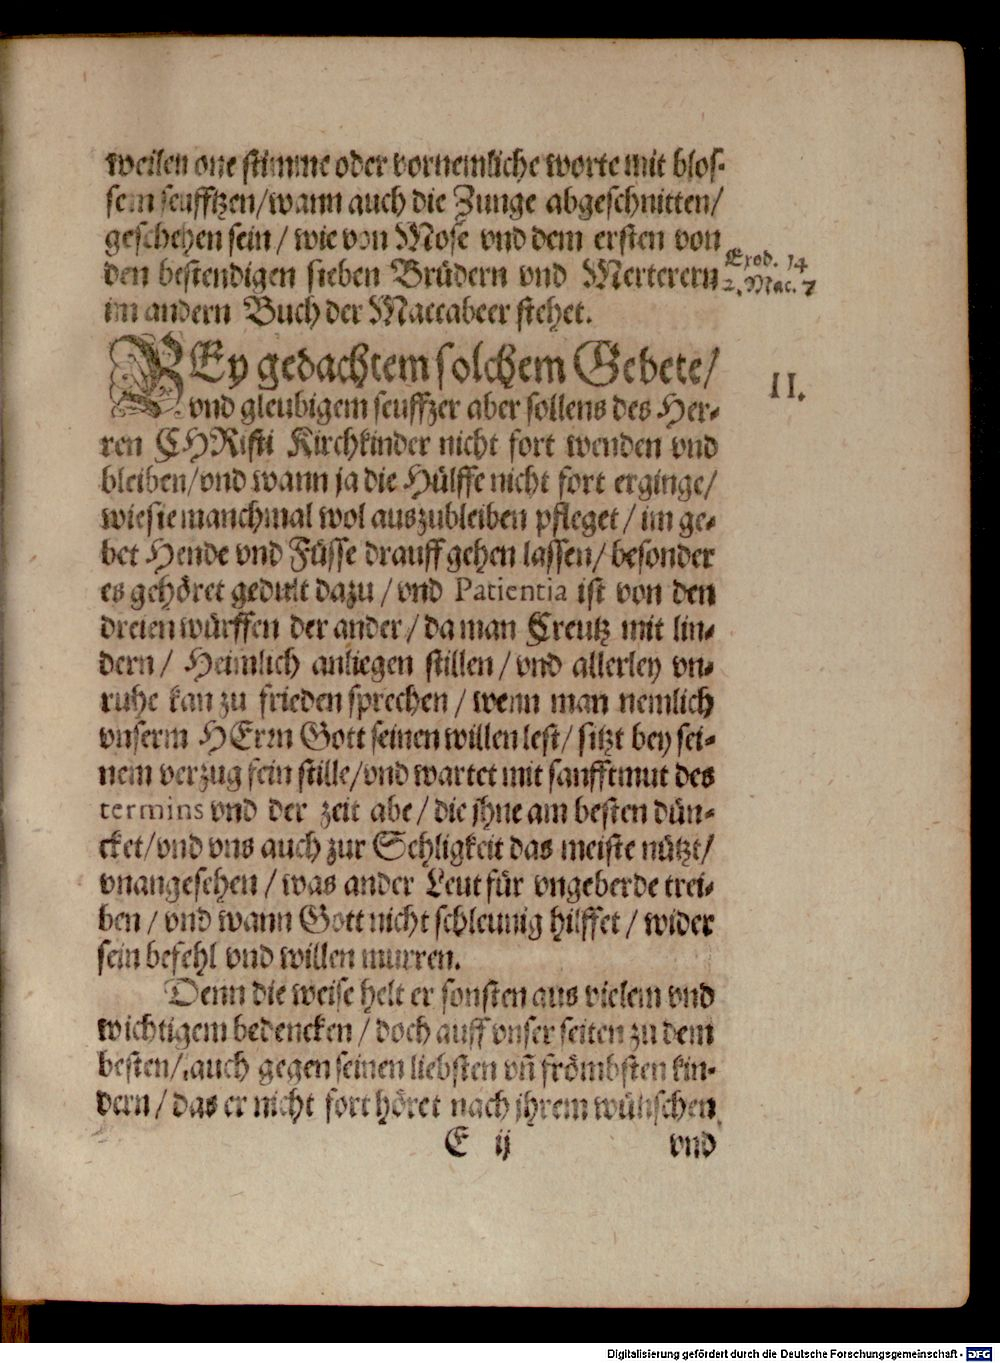 weilen one stimme oder vornemliche worte mit blos-
sem seufftzen/wann auch die Zunge abgeschnitten/
geschehen sein / wie von Mose vnd dem ersten von
den bestendigen sieben Brüdern vnd Merterern
Exod. 14
2. Mac. 7
im andern Buch der Maccabeer stehet.
BEy gedachtem solchem Gebete/
II.
vnd gleubigem seuffzer aber sollens des Her-
ren CHRisti Kirchkinder nicht fort wenden vnd
bleiben/vnd wann ja die Hülffe nicht fort erginge/
wie sie manchmal wol auszubleiben pfleget / im ge-
bet Hende vnd Füsse drauff gehen lassen/ besonder
es gehöret gedult dazu / vnd Patientia ist von den
dreien würffen der ander / da man Creutz mit lin-
dern / Heimlich anliegen stillen / vnd allerley vn-
ruhe kan zu frieden sprechen / wenn man nemlich
vnserm HErrn Gott seinen willen lest/ sitzt bey sei-
nem verzug fein stille/vnd wartet mit sanfftmut des
termins vnd der zeit abe / die jhne am besten dün-
cket/vnd vns auch zur Sehligkeit das meiste nützt/
vnangesehen / was ander Leut für vngeberde trei-
ben / vnd wann Gott nicht schleunig hilffet / wider
sein befehl vnd willen murren.
Denn die weise helt er sonsten aus vielem vnd
wichtigem bedencken / doch auff vnser seiten zu dem
besten/ auch gegen seinen liebsten vñ frömbsten kin-
dern / das er nicht fort höret nach jhrem wünschen
E ij
vnd
Digitalisierung gefördert durch die Deutsche Forschungsgemeinschaft - DFG